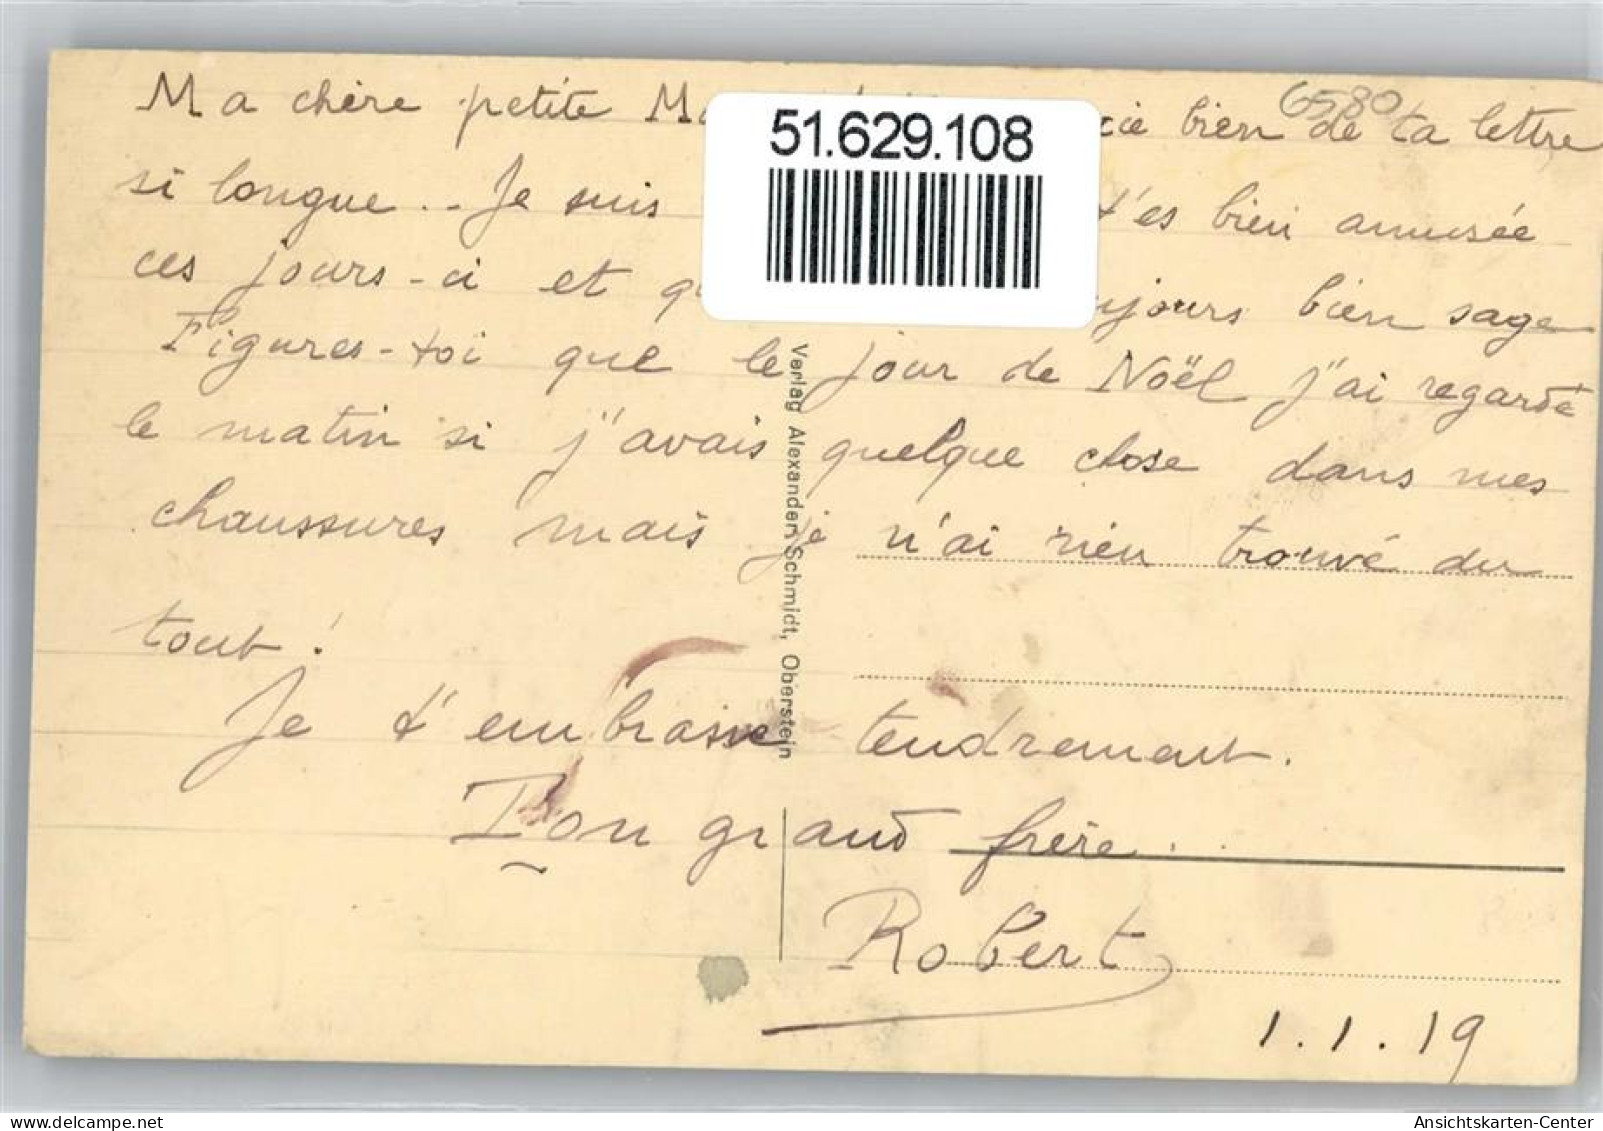 Ma chère petite bien de ta lettre
6580
51.629.108
si longue .. Je suis t'es bien amusée
ces jours-ci et toujours bien sage
Figures-toi que le jour de Noël j'ai regardé
le matin si j'avais quelque chose dans mes
chaussures mais je n'ai rien trouvé du
tout !
Je t'embrasse tendrement.
Ton grand frère.
Robert
1.1.19
Verlag Alexander Schmidt, Oberstein
Ansichtskarten-Center